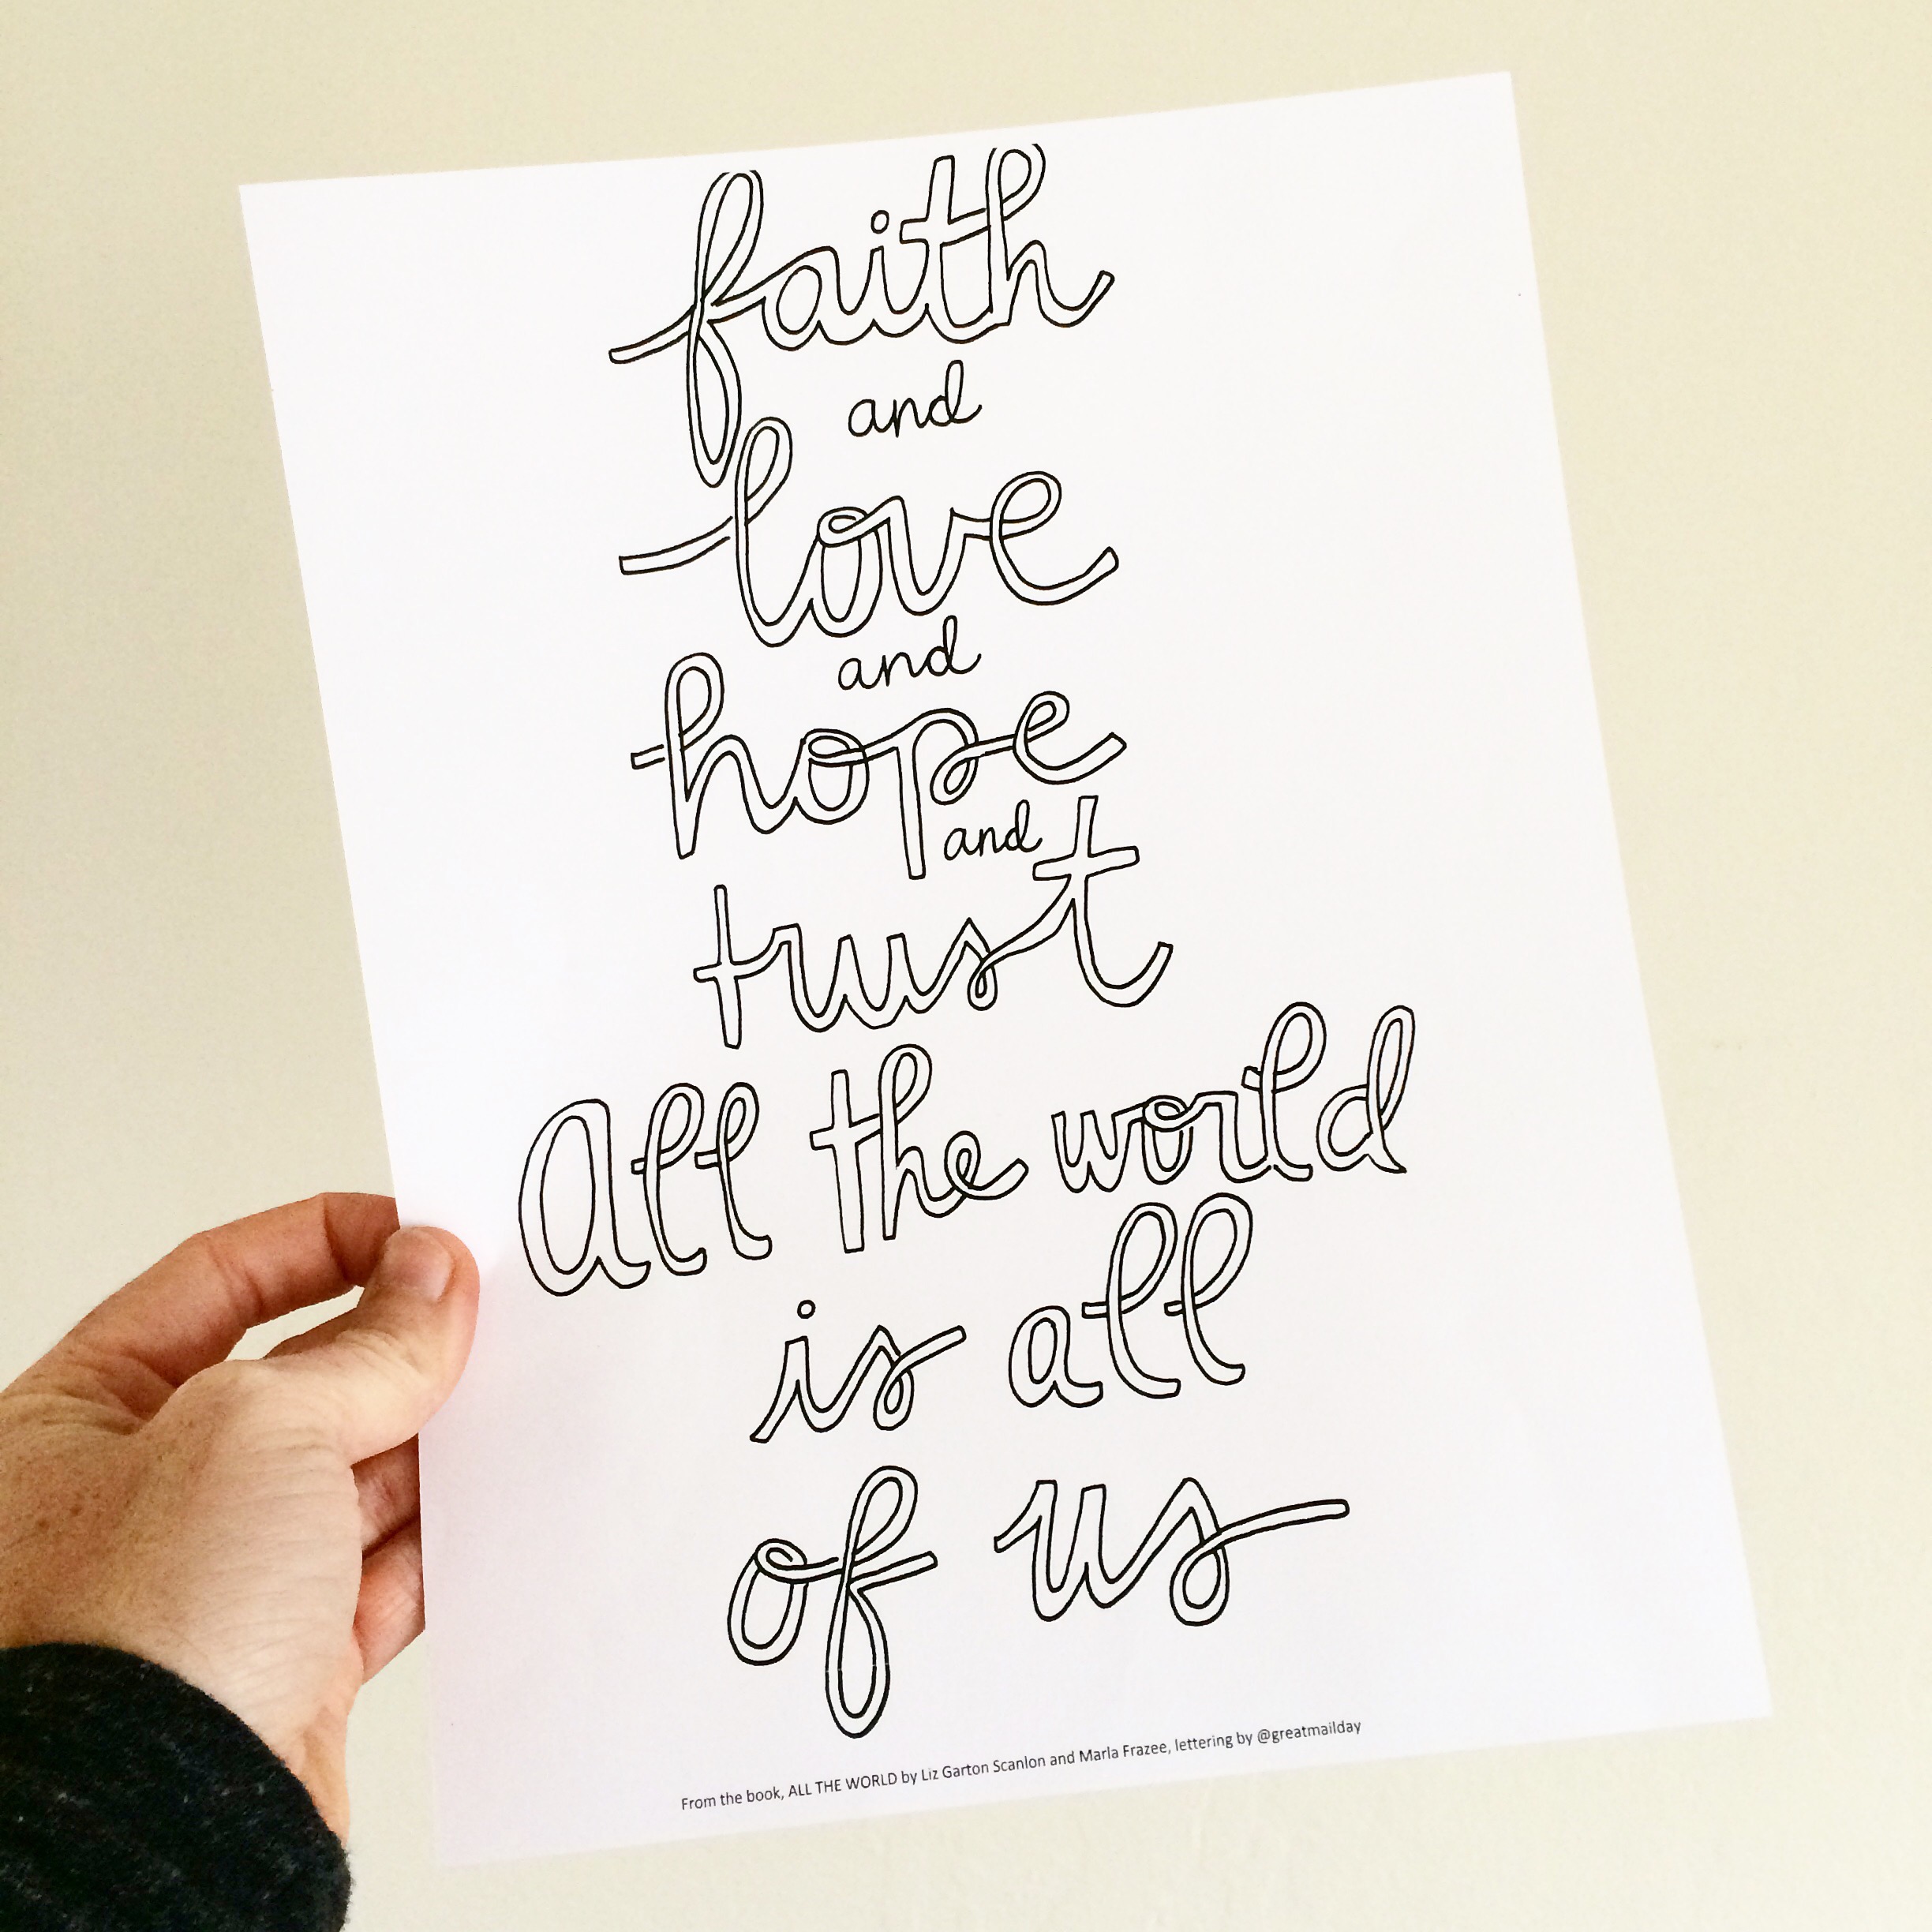 faith
and
love
and
hope
and
trust
All the world
is all
of us
From the book, ALL THE WORLD by Liz Garton Scanlon and Marla Frazee, lettering by @greatmailday